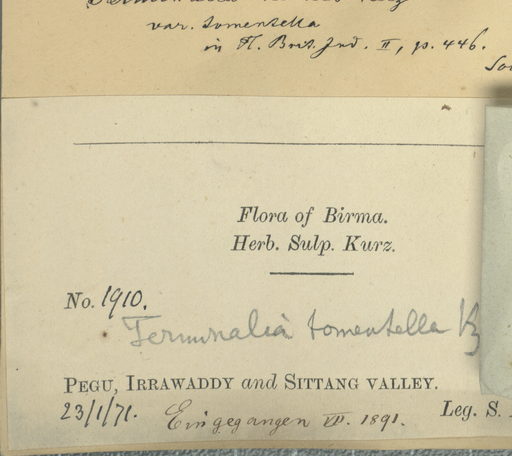 var. tomentella
in Fl. Brit. Ind. II, p. 446.
Flora of Birma.
Herb. Sulp. Kurz.
No. 1910.
Terminalia tomentella Kz
Pegu, Irrawaddy and Sittang valley.
23/1/71. Eingegangen VII. 1891. Leg. S.